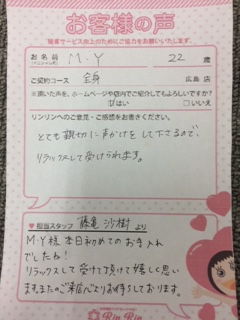 お客様の声
顧客サービス向上のためにご協力をお願いいたします。
お名前 M.Y 22 歳
(イニシャル可)
ご契約コース 全身 広島 店
※頂いた声を、ホームページや店内でご紹介してもよろしいですか?
☑はい □いいえ
リンリンへのご意見・ご感想をお書きください。
とても親切に声かけをして下さるので、
リラックスして受けられます。
担当スタッフ 藤亀 沙樹 より
M・Y様 本日初めてのお手入れ
でしたね!
リラックスして受けて頂けて嬉しく思い
ます。またのご来店心よりお待ちしております。
Rin Rin